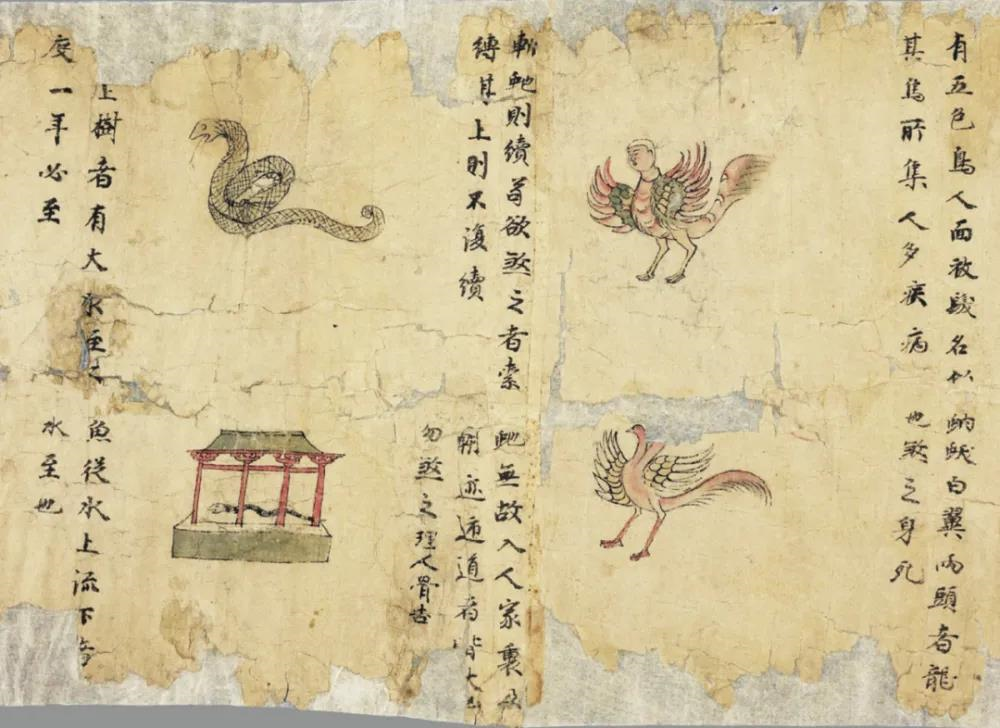 有五色鳥人面被髮名
其鳥所集人多疾病
白翼兩頭者龍
也煞之身死
虵則續苟欲煞之者索
縛其上則不復續
虵無故入人家裏及
道者皆大
勿煞之理人骨吉
上樹者有大水至之
度一年必至
魚從水上流下者
水至也